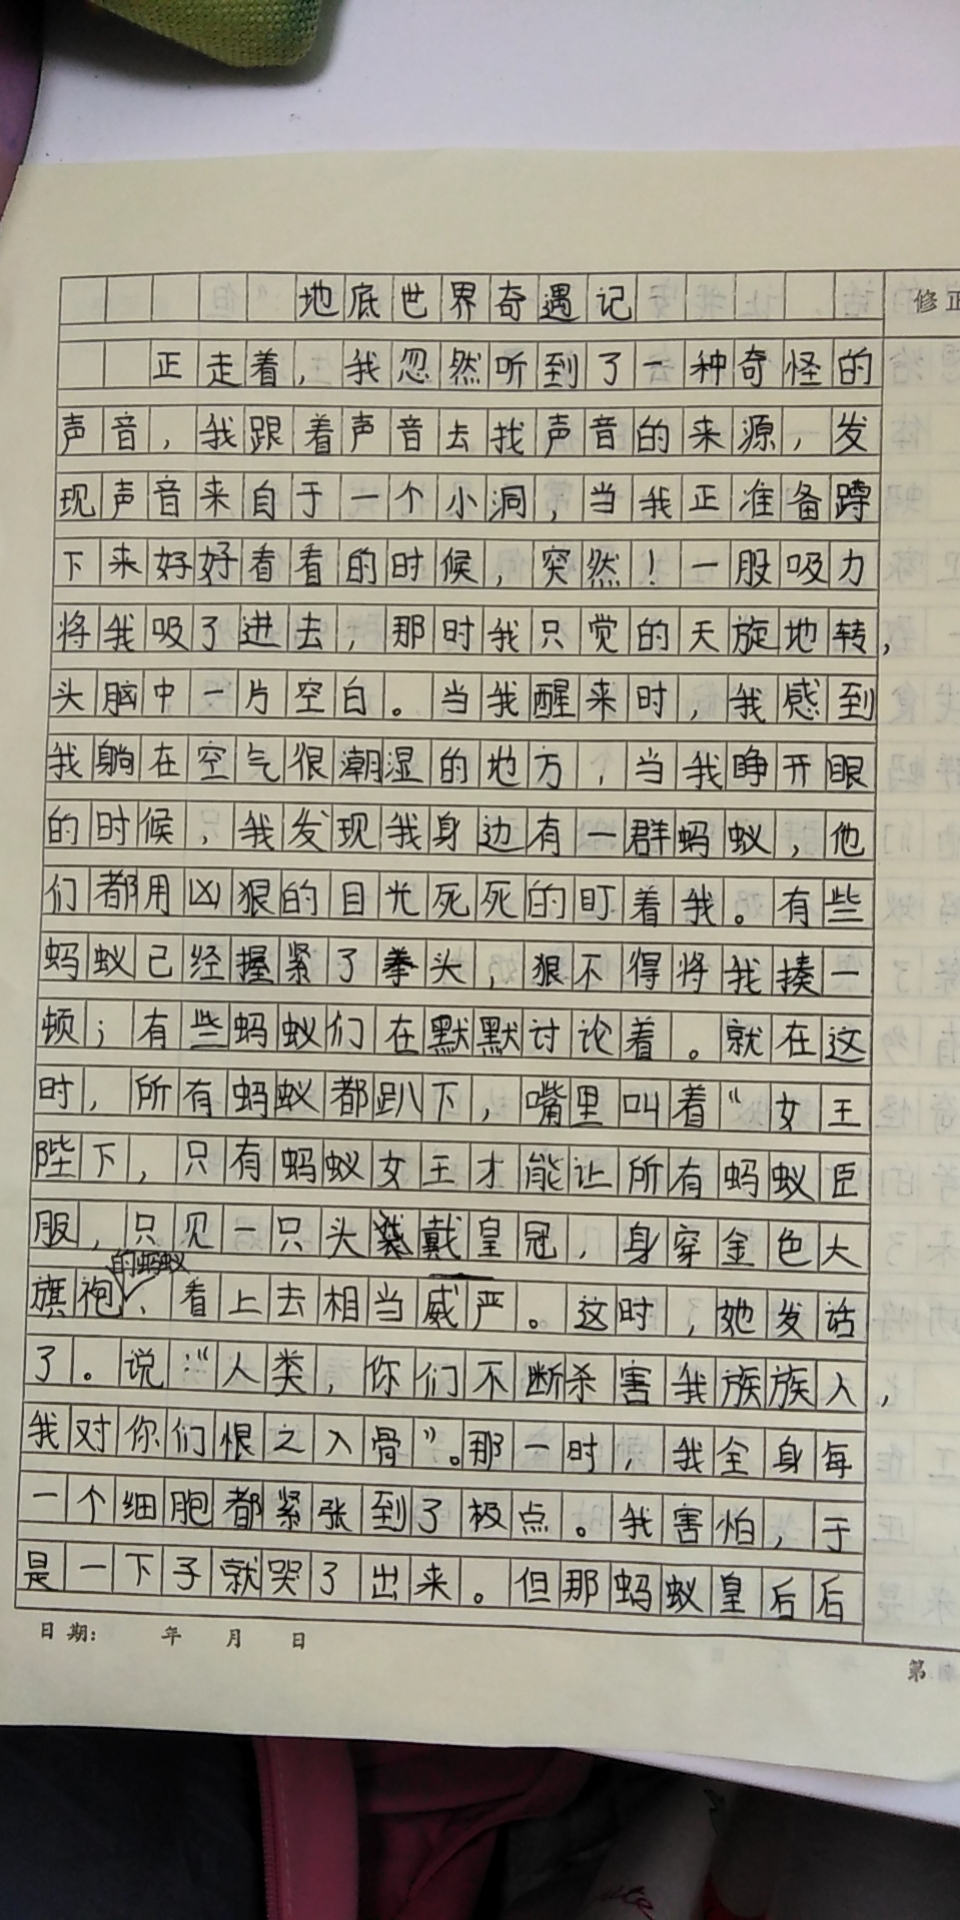 地底世界奇遇记
修正
正走着，我忽然听到了一种奇怪的
声音，我跟着声音去找声音的来源，发
现声音来自于一个小洞，当我正准备蹲
下来好好看看的时候，突然！一股吸力
将我吸了进去，那时我只觉的天旋地转，
头脑中一片空白。当我醒来时，我感到
我躺在空气很潮湿的地方，当我睁开眼
的时候，我发现我身边有一群蚂蚁，他
们都用凶狠的目光死死的盯着我。有些
蚂蚁已经握紧了拳头，狠不得将我揍一
顿；有些蚂蚁们在默默讨论着。就在这
时，所有蚂蚁都趴下，嘴里叫着“女王
陛下，只有蚂蚁女王才能让所有蚂蚁臣
服，只见一只头戴皇冠，身穿金色大
旗袍的蚂蚁、看上去相当威严。这时，她发话
了。说：“人类，你们不断杀害我族族人，
我对你们恨之入骨”。那一时，我全身每
一个细胞都紧张到了极点。我害怕，于
是一下子就哭了出来。但那蚂蚁皇后后
日期： 年 月 日
第